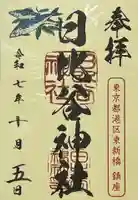 参拝
東京都港区東新橋 鎮座
日比谷神社
令和七年十月五日